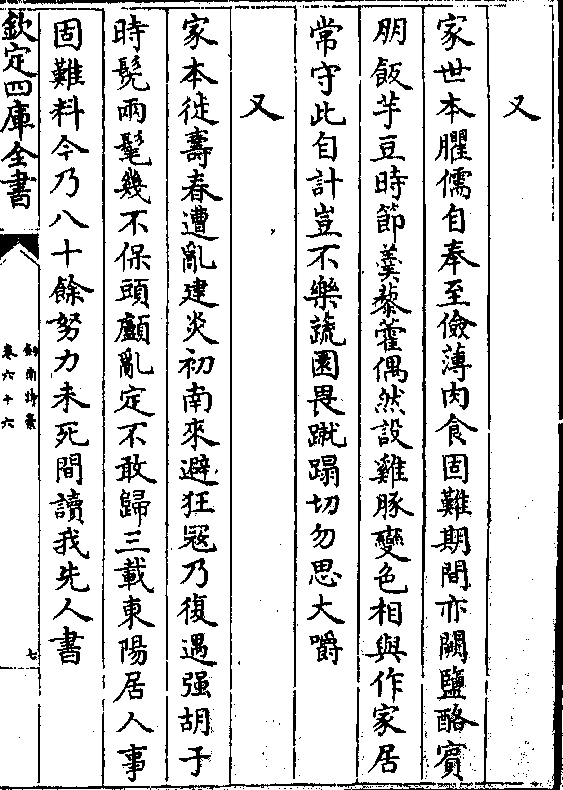 又
家世本臞儒自奉至儉薄肉食固難期間亦闕鹽酪賓
朋飯芋豆時節羮藜藿偶然設雞豚變色相與作家居
常守此自計豈不樂蔬園畏蹴蹋切勿思大嚼
又
家本徙壽春遭亂建炎初南來避狂寇乃復遇强胡于
時髧兩髦幾不保頭顱亂定不敢歸三載東陽居人事
固難料今乃八十餘努力未死間讀我先人書
欽定四庫全書
劍南詩藁
卷六十六
七